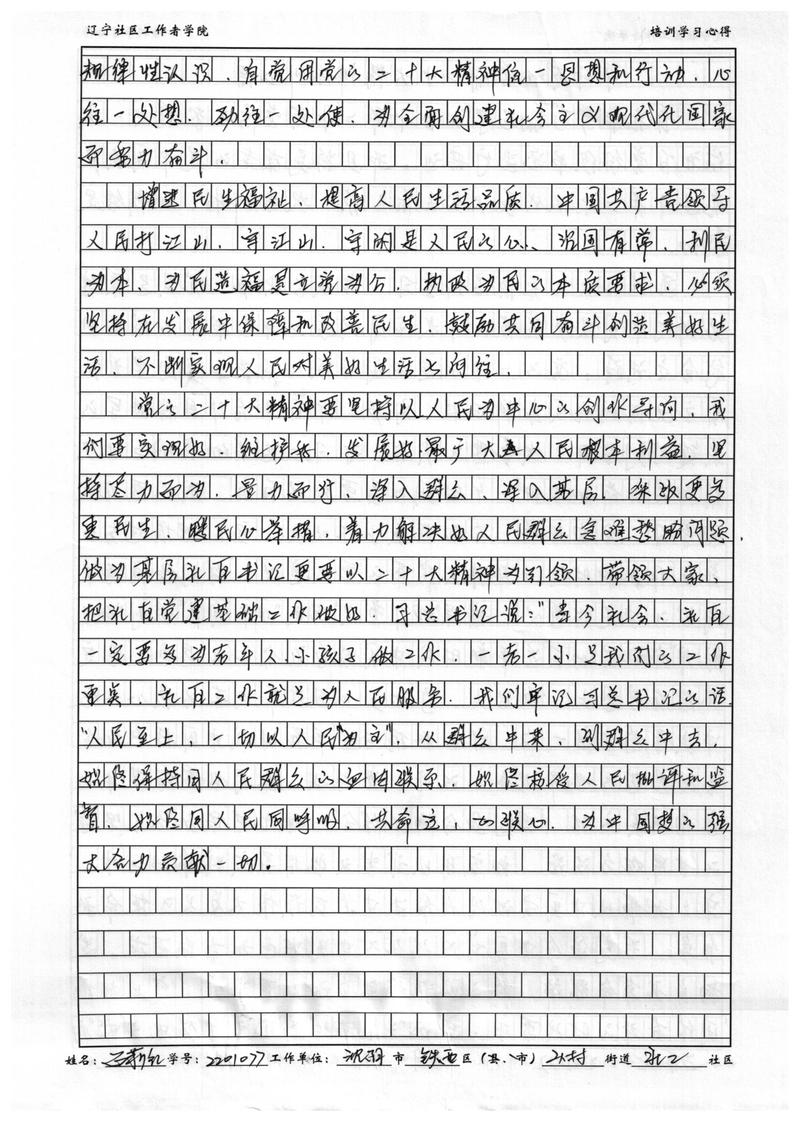 辽宁社区工作者学院 培训学习心得
规律性认识，自觉用党的二十大精神统一思想和行动，心
往一处想，劲往一处使，为全面创建社会主义现代化国家
而努力奋斗。
增进民生福祉，提高人民生活品质，中国共产党领导
人民打江山，守江山，守的是人民的心、治国有常，利民
为本，为民造福是立党为公，执政为民的本质要求，必须
坚持在发展中保障和改善民生，鼓励共同奋斗创造美好生
活，不断实现人民对美好生活的向往。
党的二十大精神要坚持以人民为中心的创作导向，我
们要实现好，维护好，发展好最广大人民根本利益，坚
持尽力而为，量力而行，深入群众、深入基层，采取更多
惠民生，暖民心举措，着力解决好人民群众急难愁盼问题，
做为基层社区书记更要以二十大精神为引领，带领大家，
把社区党建基础工作做好，习总书记说："当今社会，社区
一定要多为老年人、小孩子做工作，一老一小是我们的工作
重点，社区工作就是为人民服务，我们牢记习总书记的话
"人民至上，一切以人民"为主"，从群众中来，到群众中去，
始终保持同人民群众的血肉联系，始终接受人民批评和监
督，始终同人民同呼吸，共命运，心联心，为中国梦的强
大合力贡献一切。
姓名： 学号：2201077 工作单位：沈阳 市 铁西 区（县、市） 街道 社区